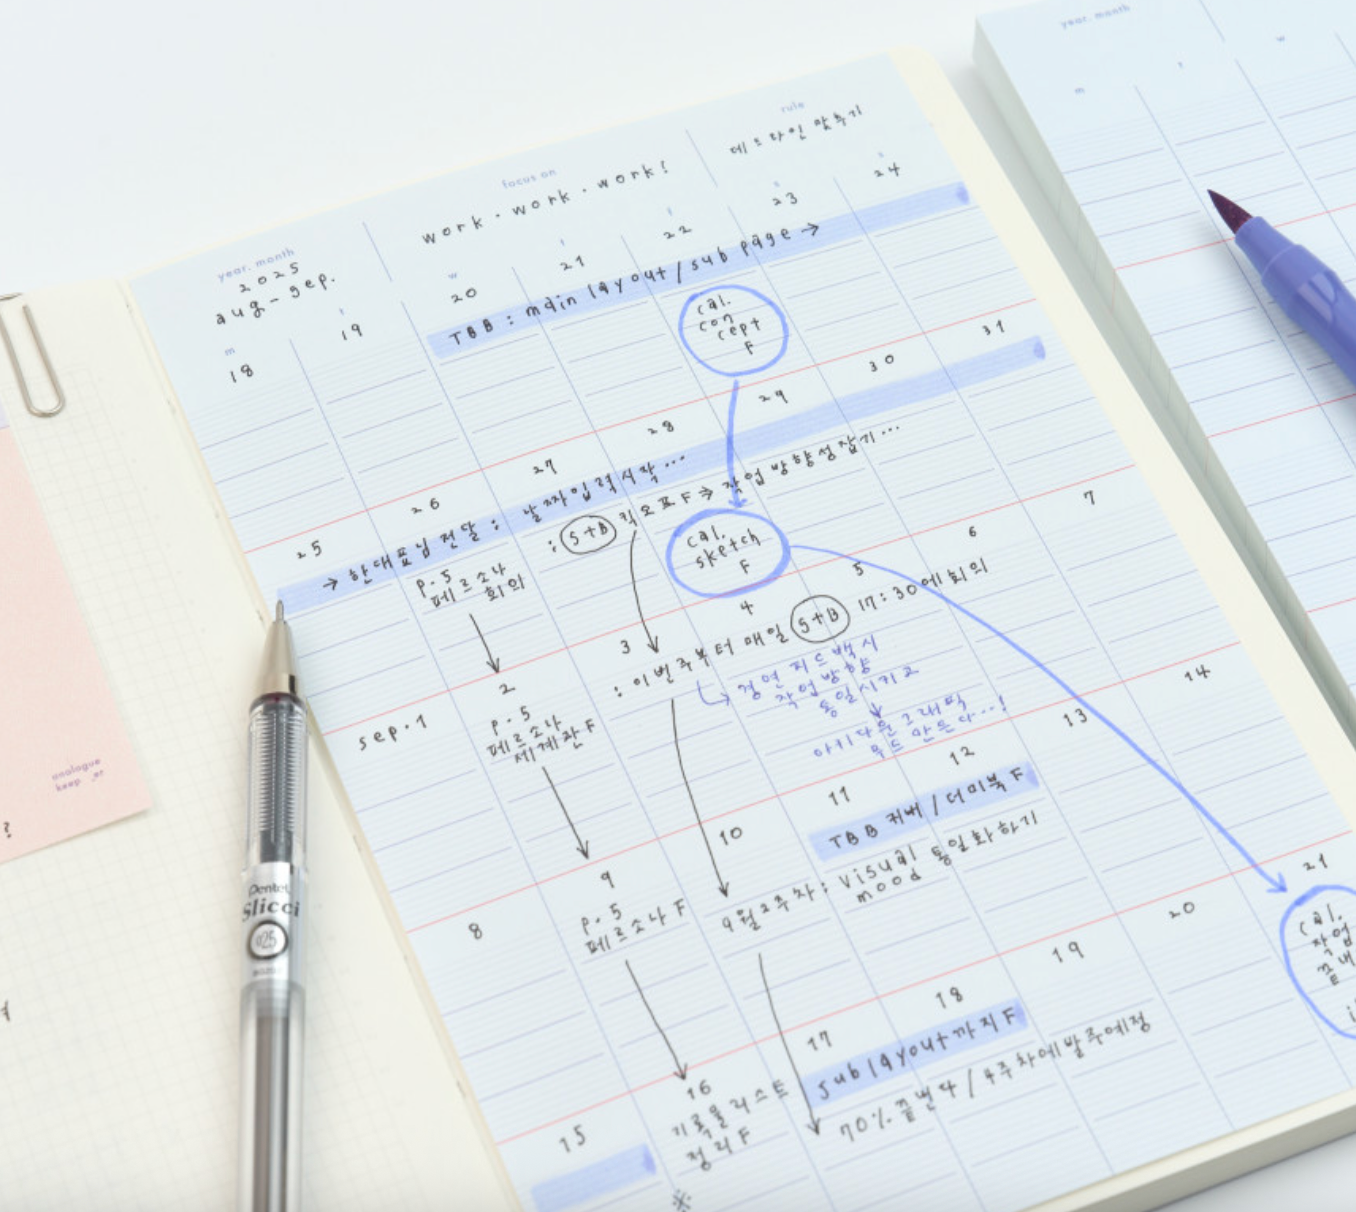 year. month
2025
aug-sep.
focus on
work·work·work!
rule
데드라인 맞추기
m
18
t
19
w
20
t
21
f
22
s
23
s
24
TBB : main layout / sub page →
cal.
con
cept
F
25
26
27
28
29
30
31
→ 한대표님 전달 : 날짜입력시작...
p.5
페르소나
회의
: S+B 킥오프F ⇒ 작업 방향성잡기...
cal.
sketch
F
sep.1
2
3
4
5
6
7
p.5
페르소나
세계관F
: 이번주부터 매일 S+B 17:30에 회의
피드백시
작업방향
통일시키고
그래픽
무드 만든다...!
8
9
10
11
12
13
14
p.5
페르소나F
9월2주차: visual 통일화하기
mood
TBB 커버/더미북F
15
16
17
18
19
20
21
기록물리스트
정리F
※
sub layout까지F
70% 끝낸다 / 4주차에발주예정
cal.
작업
끝내
year. month
m
t
w
analogue
keeper
?
Pentel
Slicci
025